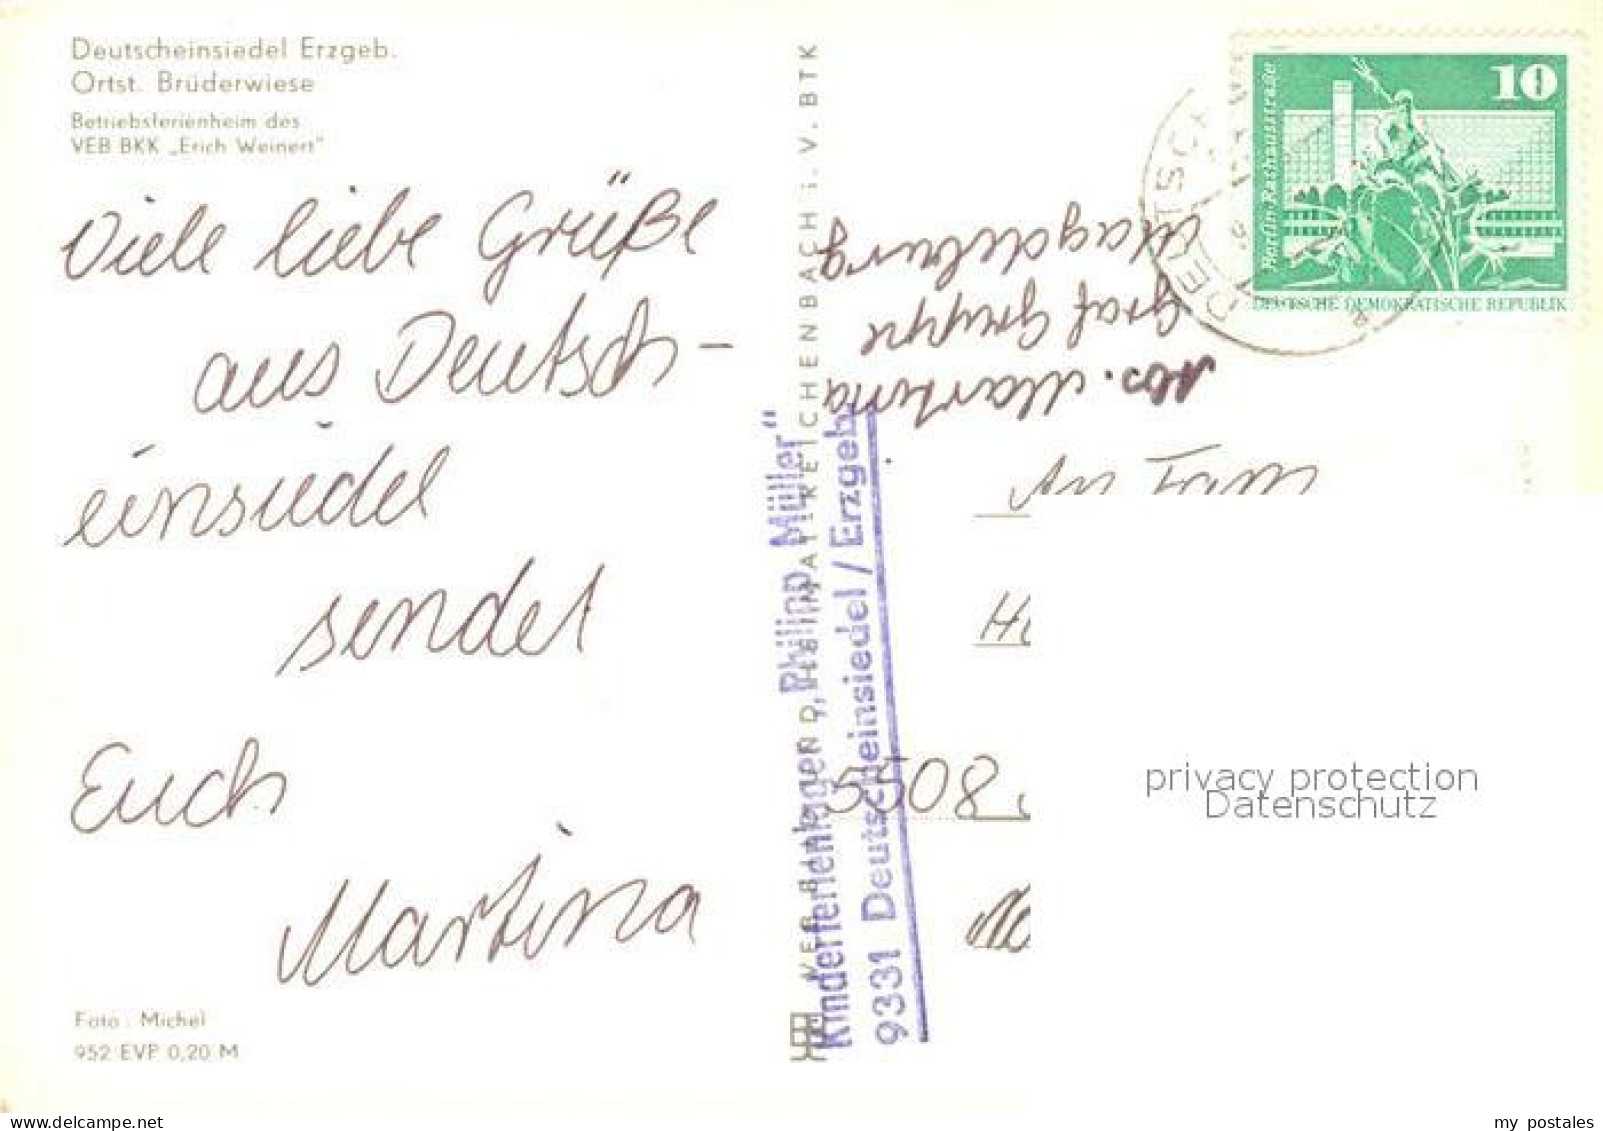 Deutscheinsiedel Erzgeb.
Ortst. Brüderwiese
Betriebsferienheim des
VEB BKK „Erich Weinert"
Viele liebe Grüße
aus Deutsch-
einsiedel
sendet
Euch
Martina
Foto: Michel
952 EVP 0,20 M
VEB BILD UND HEIMAT REICHENBACH i. V. BTK
Kinderferienlager „Philipp Müller"
9331 Deutscheinsiedel / Erzgeb.
Abs. Martina
Graf Gruppe
Magdeburg
10
Berlin, Rathausstraße
DEUTSCHE DEMOKRATISCHE REPUBLIK
DEUTSCH
An Fam
5508
privacy protection
Datenschutz
delcampe.net
my_postales